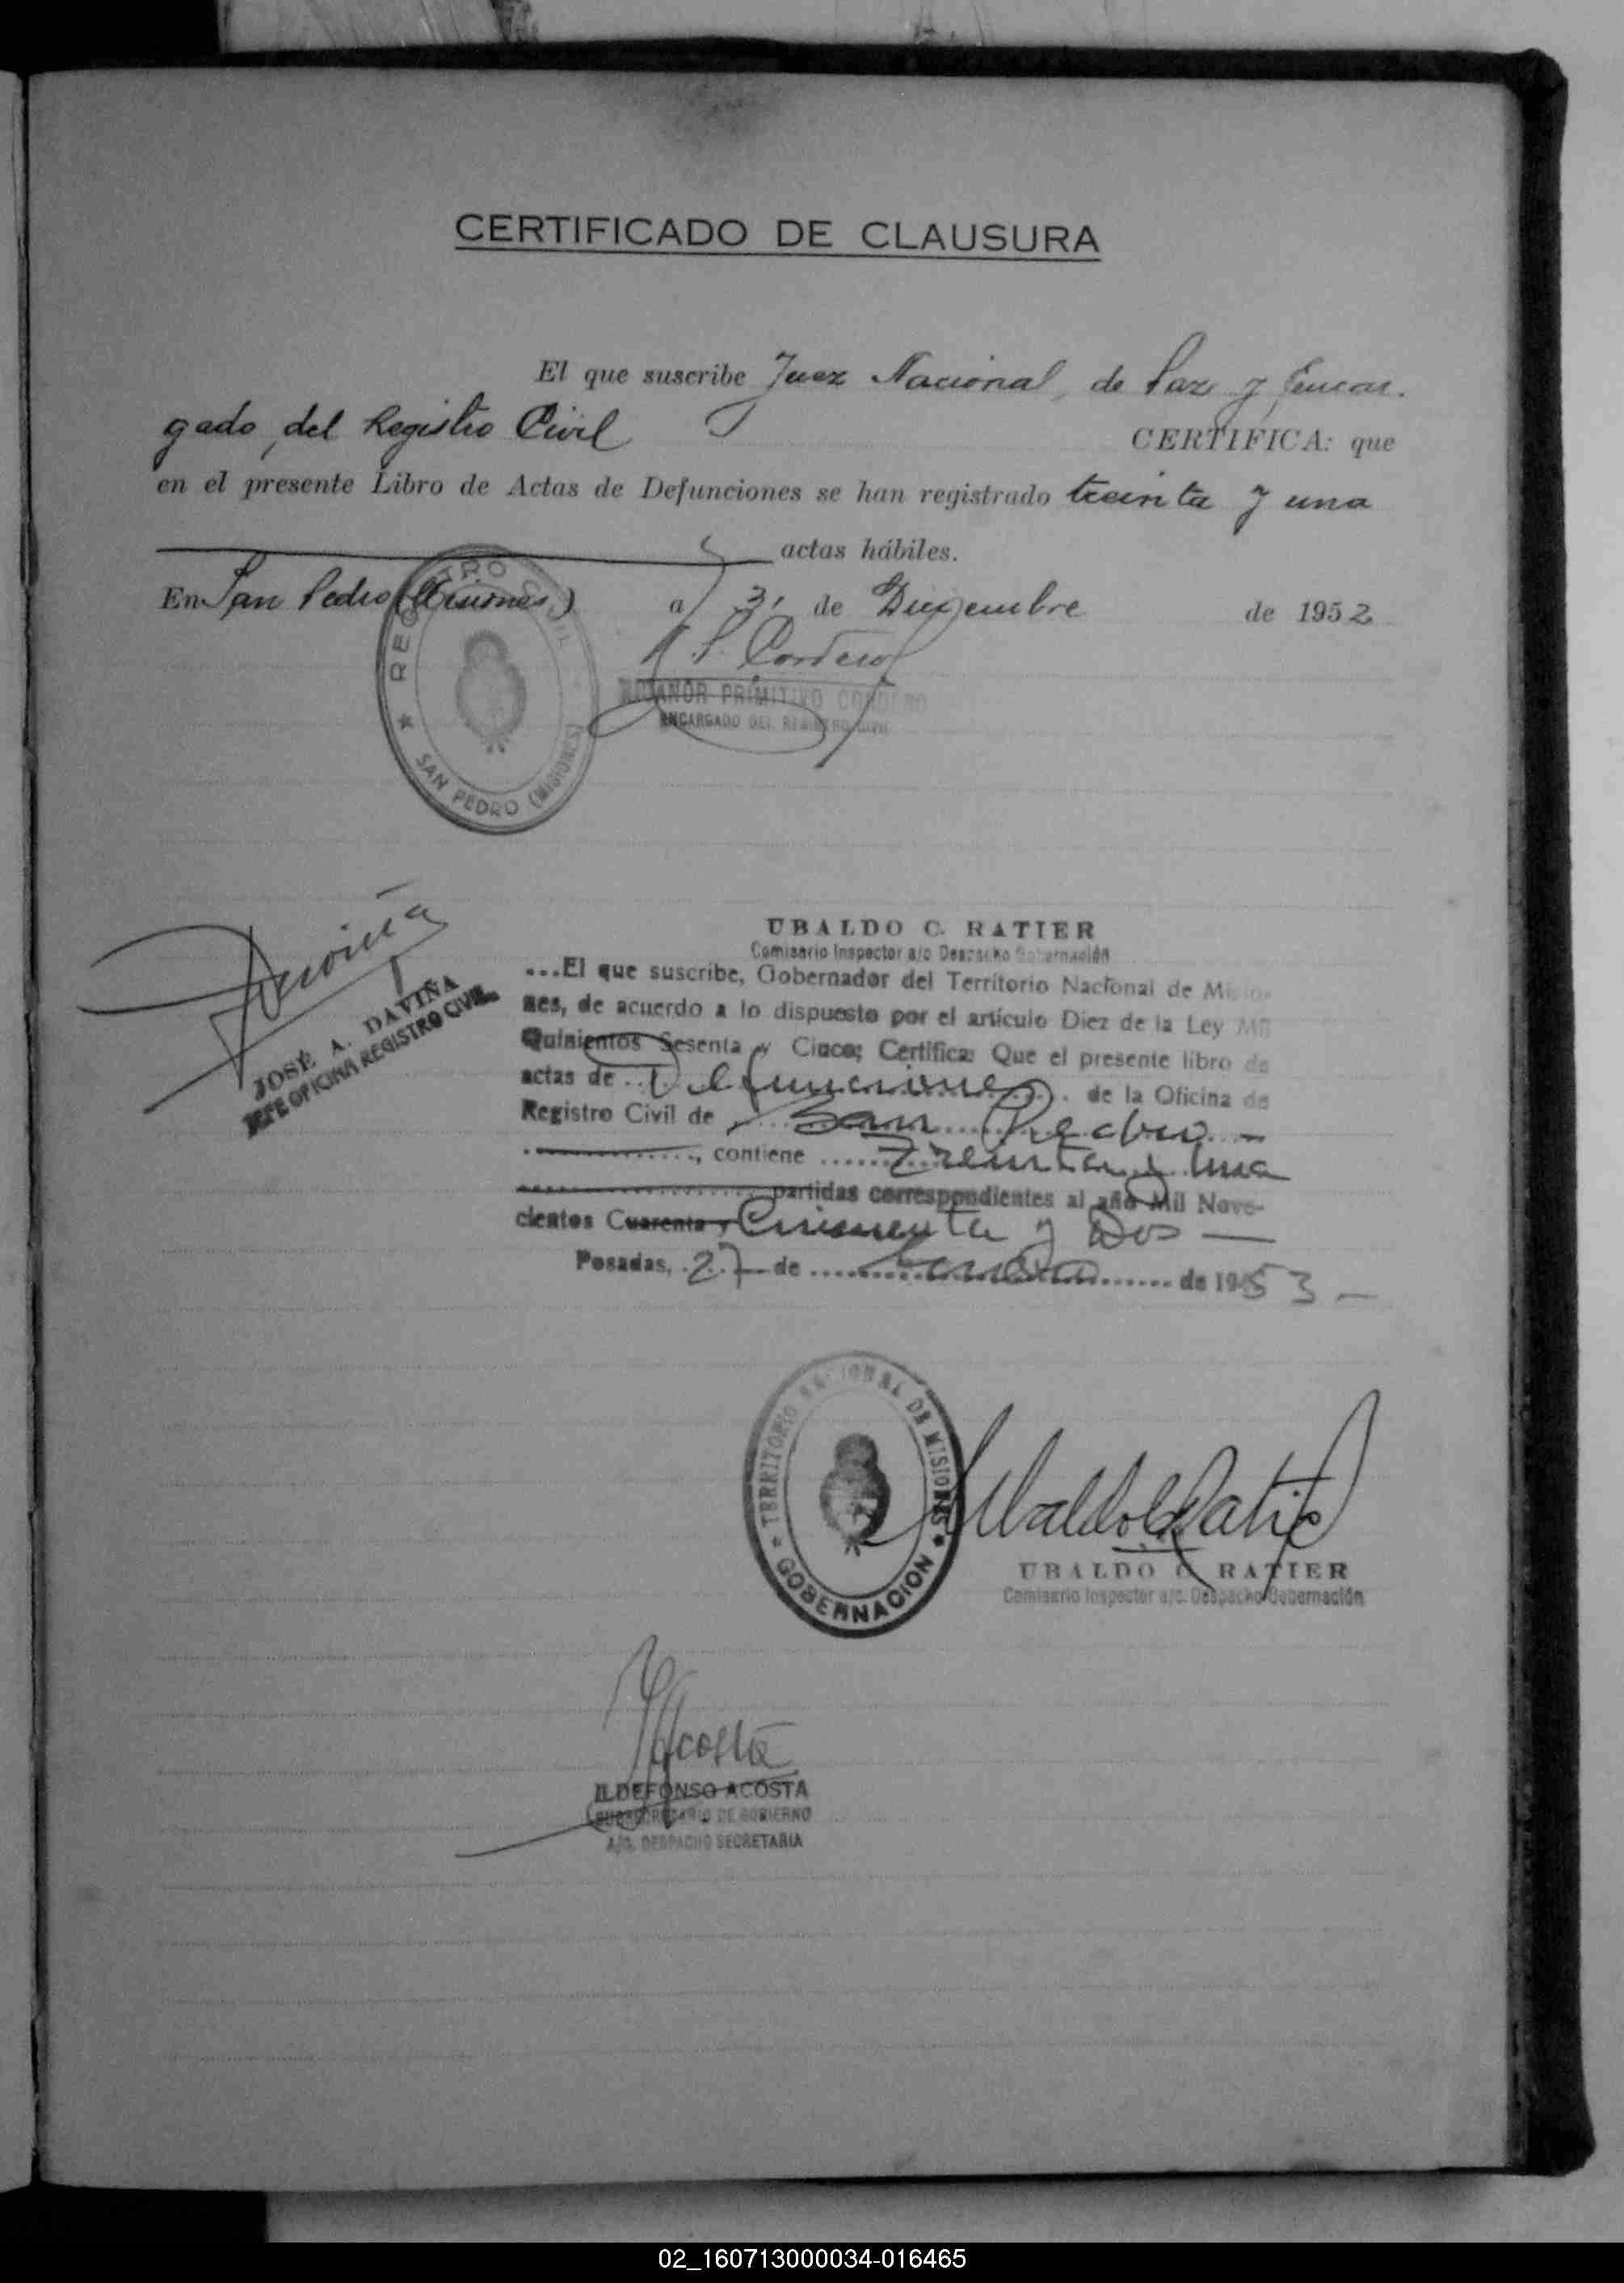 CERTIFICADO DE CLAUSURA
El que suscribe Juez Nacional, de Paz y Encar-
gado, del Registro Civil CERTIFICA: que
en el presente Libro de Actas de Defunciones se han registrado treinta y una
actas hábiles.
En San Pedro (Misiones) a 31 de Diciembre de 1952
REGISTRO CIVIL
SAN PEDRO (MISIONES)
N. P. Cordero
NICANOR PRIMITIVO CORDERO
ENCARGADO DEL REGISTRO CIVIL
Daviña
JOSÉ A. DAVIÑA
JEFE OFICINA REGISTRO CIVIL
UBALDO C. RATIER
Comisario Inspector a/c Despacho Gobernación
...El que suscribe, Gobernador del Territorio Nacional de Misio-
nes, de acuerdo a lo dispuesto por el artículo Diez de la Ley Mil
Quinientos Sesenta y Cinco; Certifica: Que el presente libro de
actas de Defunciones de la Oficina de
Registro Civil de San Pedro -
, contiene Treinta y Una
partidas correspondientes al año Mil Nove-
cientos Cuarenta y Cincuenta y Dos —
Posadas, 27 de Enero de 1953 -
TERRITORIO NACIONAL DE MISIONES
GOBERNACION
Ubaldo C Ratier
UBALDO C. RATIER
Comisario Inspector a/c. Despacho Gobernación
Acosta
ILDEFONSO ACOSTA
SUBSECRETARIO DE GOBIERNO
A/C. DESPACHO SECRETARIA
02_160713000034-016465